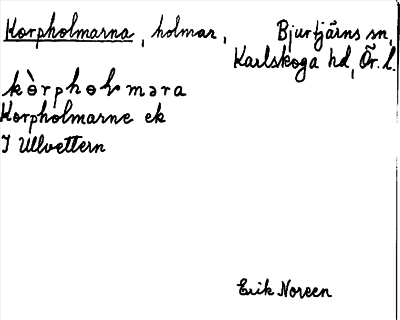 Korpholmarna, holmar, Bjurtjärns sn,
Karlskoga hd, Ör. l.
kòrphol mara
Korpholmarne ek
I Ullvettern
Erik Noreen